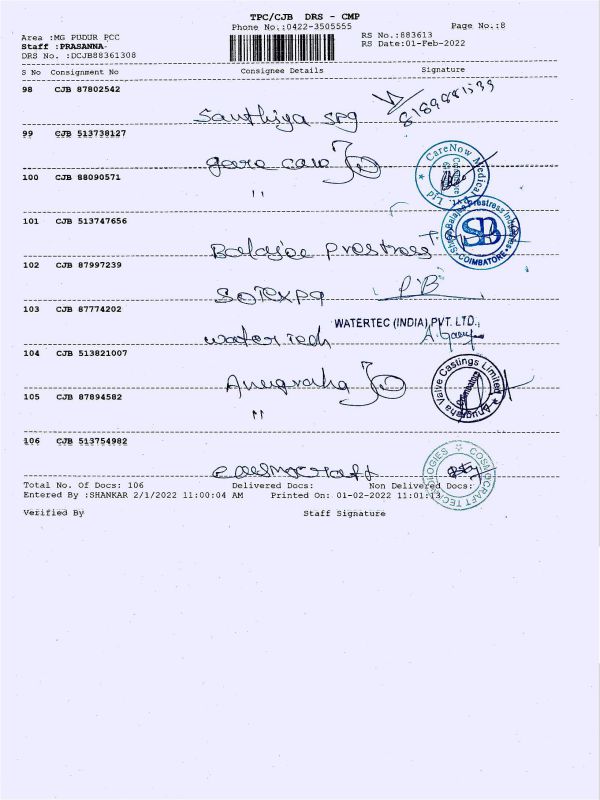 TPC/CJB DRS - CMP
Phone No.:0422-3505555
Page No.:8
Area :MG PUDUR PCC
RS No.:883613
Staff :PRASANNA
RS Date:01-Feb-2022
DRS No. :DCJB88361308
S No Consignment No Consignee Details Signature
98 CJB 87802542
Santhiya spg
8189881539
99 CJB 513738127
care care
CareNow Medical Pvt. Ltd
100 CJB 88090571
"
101 CJB 513747656
Balajee Prestress
Shree Balajee Prestress Industries
SB
COIMBATORE
102 CJB 87997239
SOTEXPA
PB
103 CJB 87774202
water tech
WATERTEC (INDIA) PVT. LTD.,
104 CJB 513821007
Anugraha
Anugraha Valve Castings Limited
Coimbatore
105 CJB 87894582
"
106 CJB 513754982
COSMOCRAFT TECHNOLOGIES
Total No. Of Docs: 106 Delivered Docs: Non Delivered Docs:
Entered By :SHANKAR 2/1/2022 11:00:04 AM Printed On: 01-02-2022 11:01:13
Verified By Staff Signature